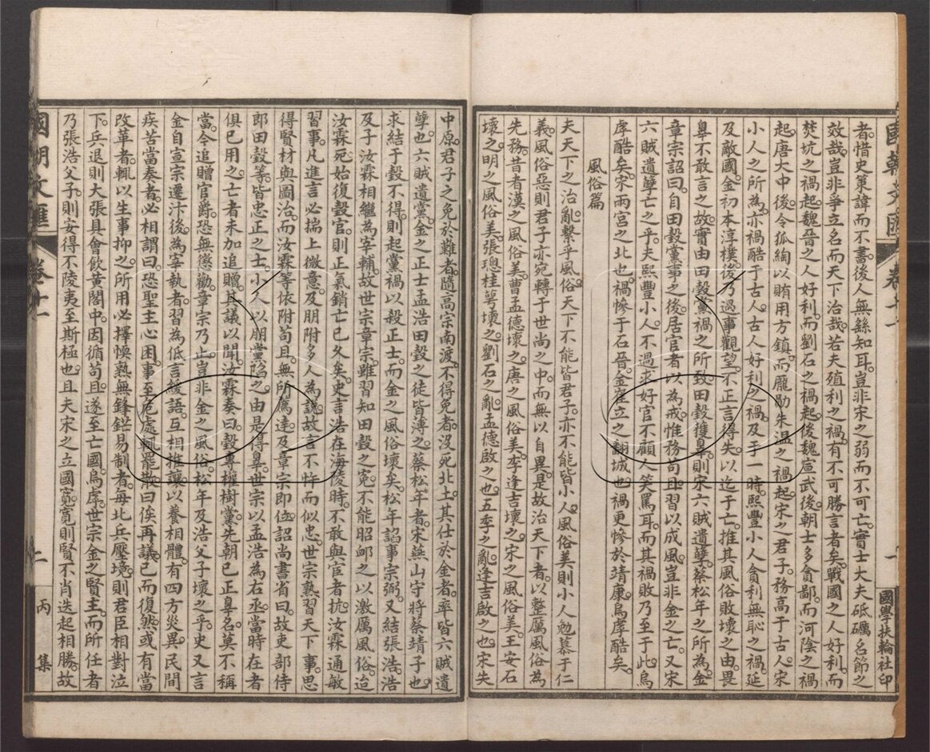 國朝文匯 卷十一 一 國學扶輪社印
者惜史策諱而不書後人無繇知耳豈非宋之弱而不可亡實士大夫砥礪名節之
效哉豈非爭立名而天下治哉若夫殖利之禍有不可勝言者矣戰國之人好利而
焚坑之禍起魏晉之人好利而劉石之禍起後魏宣武後朝士多貪鄙而河陰之禍
起唐大中後令狐綯以賄用方鎮而龐勛朱溫之禍起宋之君子務高于古人宋
小人之所為亦禍酷于古人古人好利之禍及乎一時熙豐小人貪利無恥之禍延
及敵國金初本淳樸後乃遇事觀望不正言得失以迄于亡推其風俗敗壞之由畏
辠不敢言之故實由田瑴黨禍之所致田瑴獲辠則宋六賊遺孽蔡松年之所為金
章宗詔曰自田瑴黨事之後居官者以為戒惟務苟且習以成風豈非金之亡又宋
六賊遺孽亡之乎夫熙豐小人不過求好官不顧人笑罵耳而其禍敗乃至于此烏
虖酷矣宋兩宮之北也禍慘于石晉金崔立之翻城也禍更慘於靖康烏虖酷矣
風俗篇
夫天下之治亂繫乎風俗天下不能皆君子亦不能皆小人風俗美則小人勉慕于仁
義風俗惡則君子亦宛轉于世尚之中而無以自異是故治天下者以整厲風俗為
先務昔者漢之風俗美曹孟德壞之唐之風俗美李逢吉壞之宋之風俗美王安石
壞之明之風俗美張璁桂萼壞之劉石之亂孟德啟之也五季之亂逢吉啟之也宋失
中原君子之免於難者隨高宗南渡不得免者沒死北土其仕於金者率皆六賊遺
孽也六賊遺黨金之正士孟浩田瑴之徒皆溥之蔡松年者宋燕山守將蔡靖子也
求結于瑴不得則起黨禍以殺正士而金之風俗壞矣松年諂事宗弼又結張浩浩
及子汝霖相繼為宰輔故世宗章宗雖習知田瑴之冤不能昭卹之以激厲風俗迨
汝霖死始復瑴官則正氣銷亡已久矣史言浩在海陵時不敢與宦者抗汝霖通敏
習事凡進言必揣上微意及朋附多人為說故言不忤而似忠世宗熟習天下事思
得賢材與圖治而汝霖等依附苟且無所薦達及章宗即位詔尚書省曰故吏部侍
郎田瑴等皆忠正之士小人以朋黨陷之由是得辠世宗以孟浩為右丞當時在者
俱已用之亡者未加追贈其議以聞汝霖奏曰瑴專權樹黨先朝已正辠名莫不稱
當今追贈官爵恐無懲勸章宗乃止豈非金之風俗松年及浩父子壞之乎史又言
金自宣宗遷汴後為宰執者習為低言緩語互相推讓以養相體有四方災異民間
疾苦當奏者必相謂曰恐聖主心困事至危處輒罷散曰俟再議已而復然或有當
改革者輒以生事抑之所用必擇愞熟無鋒鋩易制者每北兵壓境則君臣相對泣
下兵退則大張具會飲黃閣中因循苟且遂至亡國烏虖世宗金之賢主而所任者
乃張浩父子則安得不陵夷至斯極也且夫宋之立國寬寬則賢不肖迭起相勝故
國朝文匯 卷十一 二 丙集